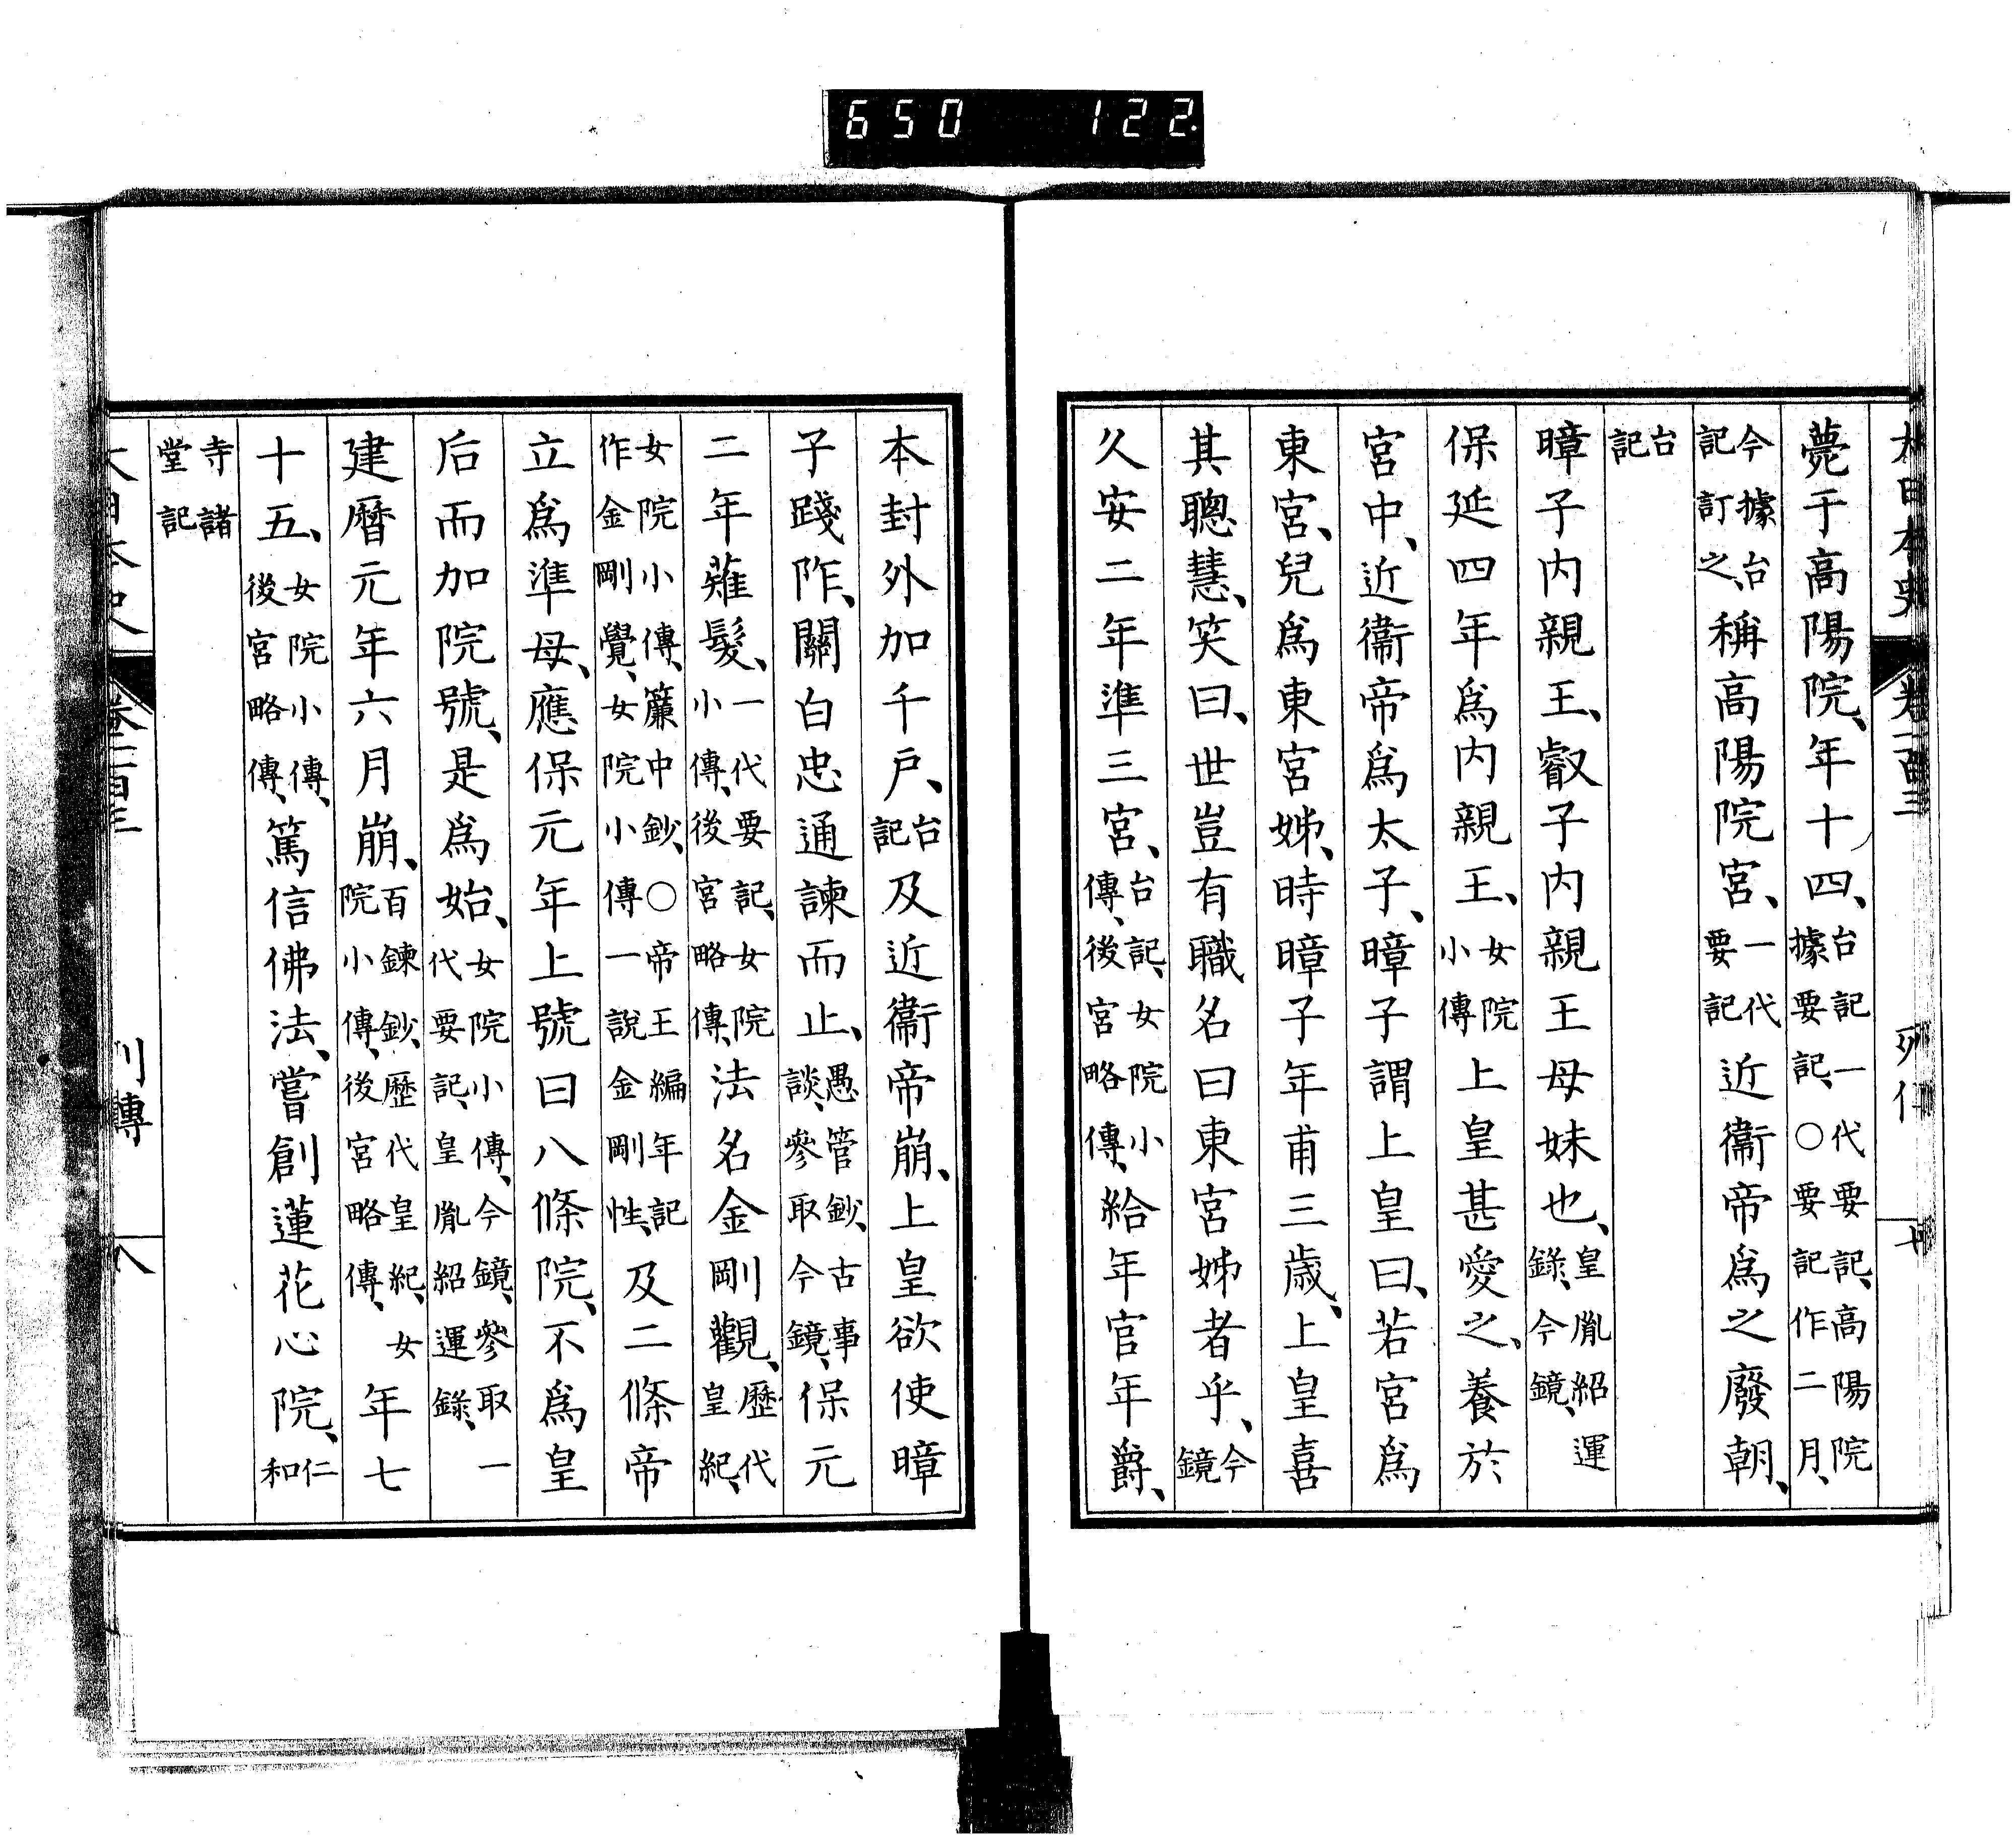 大日本史 卷一百三 列傳 十
薨于高陽院、年十四、台記一代要記、高陽院據要記、○要記作二月、
今據台記訂之、稱高陽院宮、一代要記近衞帝爲之廢朝、
台記
暲子内親王、叡子内親王母妹也、皇胤紹運錄、今鏡、
保延四年爲内親王、女院小傳上皇甚愛之、養於
宮中、近衞帝爲太子、暲子謂上皇曰、若宮爲
東宮、兒爲東宮姊、時暲子年甫三歲、上皇喜
其聰慧、笑曰、世豈有職名曰東宮姊者乎、今鏡
久安二年準三宮、台記、女院小傳、後宮略傳、給年官年爵、
本封外加千戶、台記及近衞帝崩、上皇欲使暲
子踐阼、關白忠通諫而止、愚管鈔、古事談、參取今鏡、保元
二年薙髮、一代要記、女院小傳、後宮略傳、法名金剛觀、歷代皇紀、
女院小傳、簾中鈔、○帝王編年記作金剛覺、女院小傳一說金剛性、及二條帝
立爲準母、應保元年上號曰八條院、不爲皇
后而加院號、是爲始、女院小傳、今鏡、參取一代要記、皇胤紹運錄、
建曆元年六月崩、百鍊鈔、歷代皇紀、女院小傳、後宮略傳、年七
十五、女院小傳、後宮略傳、篤信佛法、嘗創蓮花心院、仁和
寺諸堂記
大日本史 卷一百三 列傳 八
650 122